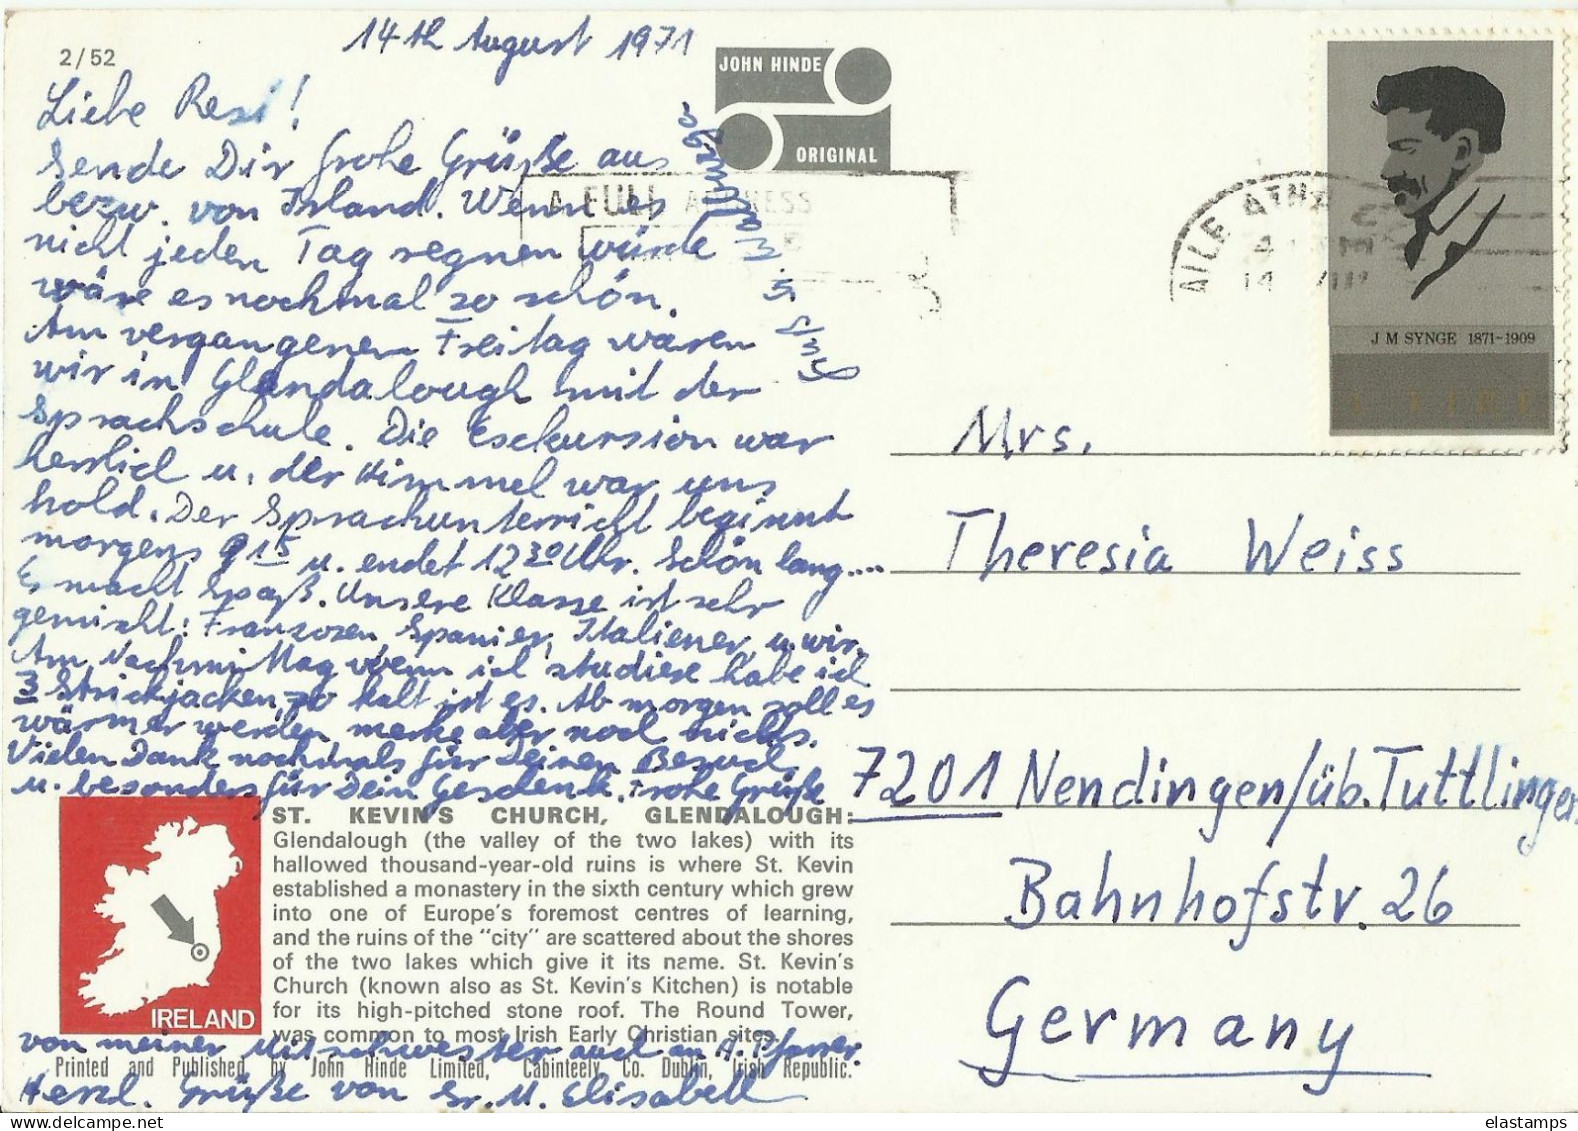 2/52
14th August 1971
Liebe Resi!
Sende Dir frohe Grüße aus
bezw. von Irland. Wenn es
nicht jeden Tag regnen würde
wäre es nochmal so schön.
Am vergangenen Freitag waren
wir in Glendalough mit der
Sprachschule. Die Exkursion war
herrlich u. der Himmel war uns
hold. Der Sprachunterricht beginnt
morgens 9 15 u. endet 12 30 Uhr. Schön lang....
Es macht Spaß. Unsere Klasse ist sehr
gemischt: Franzosen, Spanier, Italiener, u. wir.
Am Nachmittag wenn ich studiere habe ich
3 Strickjacken, so kalt ist es. Ab morgen soll es
wärmer werden merke aber noch nichts.
Vielen Dank nochmals für Deinen Besuch
u. besonders für Dein Geschenk. Frohe Grüße
von meiner Mitschwester auch an H. Pfarrer.
Herzl. Grüße von Sr. M. Elisabeth
JOHN HINDE
ORIGINAL
A FULL ADDRESS
BAILE ATHA CLI
14 VIII
J M SYNGE 1871-1909
Mrs.
Theresia Weiss
7201 Nendingen/üb. Tuttlingen
Bahnhofstr. 26
Germany
ST. KEVIN'S CHURCH, GLENDALOUGH:
Glendalough (the valley of the two lakes) with its
hallowed thousand-year-old ruins is where St. Kevin
established a monastery in the sixth century which grew
into one of Europe's foremost centres of learning,
and the ruins of the "city" are scattered about the shores
of the two lakes which give it its name. St. Kevin's
Church (known also as St. Kevin's Kitchen) is notable
for its high-pitched stone roof. The Round Tower,
was common to most Irish Early Christian sites.
IRELAND
Printed and Published by John Hinde Limited, Cabinteely Co. Dublin, Irish Republic.
elastamps